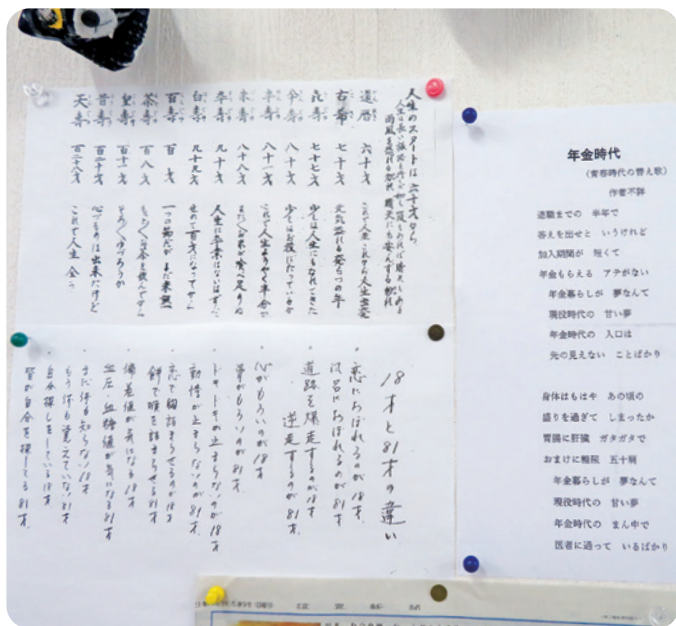 人生のスタートは六十才から
還暦 六十才 これで人生これから人生出発
古希 七十才 元気溢れる発ちつの年
喜寿 七十七才 少しは人生にもなれてきた
傘寿 八十才 少しはお役にたっているか
半寿 八十一才 これで人生ようやく半分
米寿 八十八才 まだまだお米が食べ足りぬ
卒寿 九十才 人生に卒業はないはず
白寿 九十九才 せめて百才になってから
百寿 百才 一つの節だがまだ未熟
茶寿 百八才 まだまだお茶を飲んでから
皇寿 百十一才 そろそろゆづろうか
昔寿 百二十才 心づもりは出来たけど
天寿 百二十八才 これで人生全う
18才と81才の違い
・恋におぼれるのが18才
風呂におぼれるのが81才
・道路を爆走するのが18才
逆走するのが81才
・心がもろいのが18才
骨がもろいのが81才
・ドキドキが止まらないのが18才
動悸が止まらないのが81才
・恋で胸詰まらせるのが18才
餅で喉を詰まらせる81才
・偏差値が気になる18才
血圧・血糖値が気になる81才
・まだ何も知らない18才
もう何も覚えていない81才
・自分探しをしている18才
皆が自分を探してる81才
年金時代
(青春時代の替え歌)
作者不詳
退職までの 半年で
答えを出せと いうけれど
加入期間が 短くて
年金もらえる アテがない
年金暮らしが 夢なんて
現役時代の 甘い夢
年金時代の 入口は
先の見えない ことばかり
身体はもはや あの頃の
盛りを過ぎて しまったか
胃腸に肝臓 ガタガタで
おまけに難聴 五十肩
年金暮らしが 夢なんて
現役時代の 甘い夢
年金時代の まん中で
医者に通って いるばかり